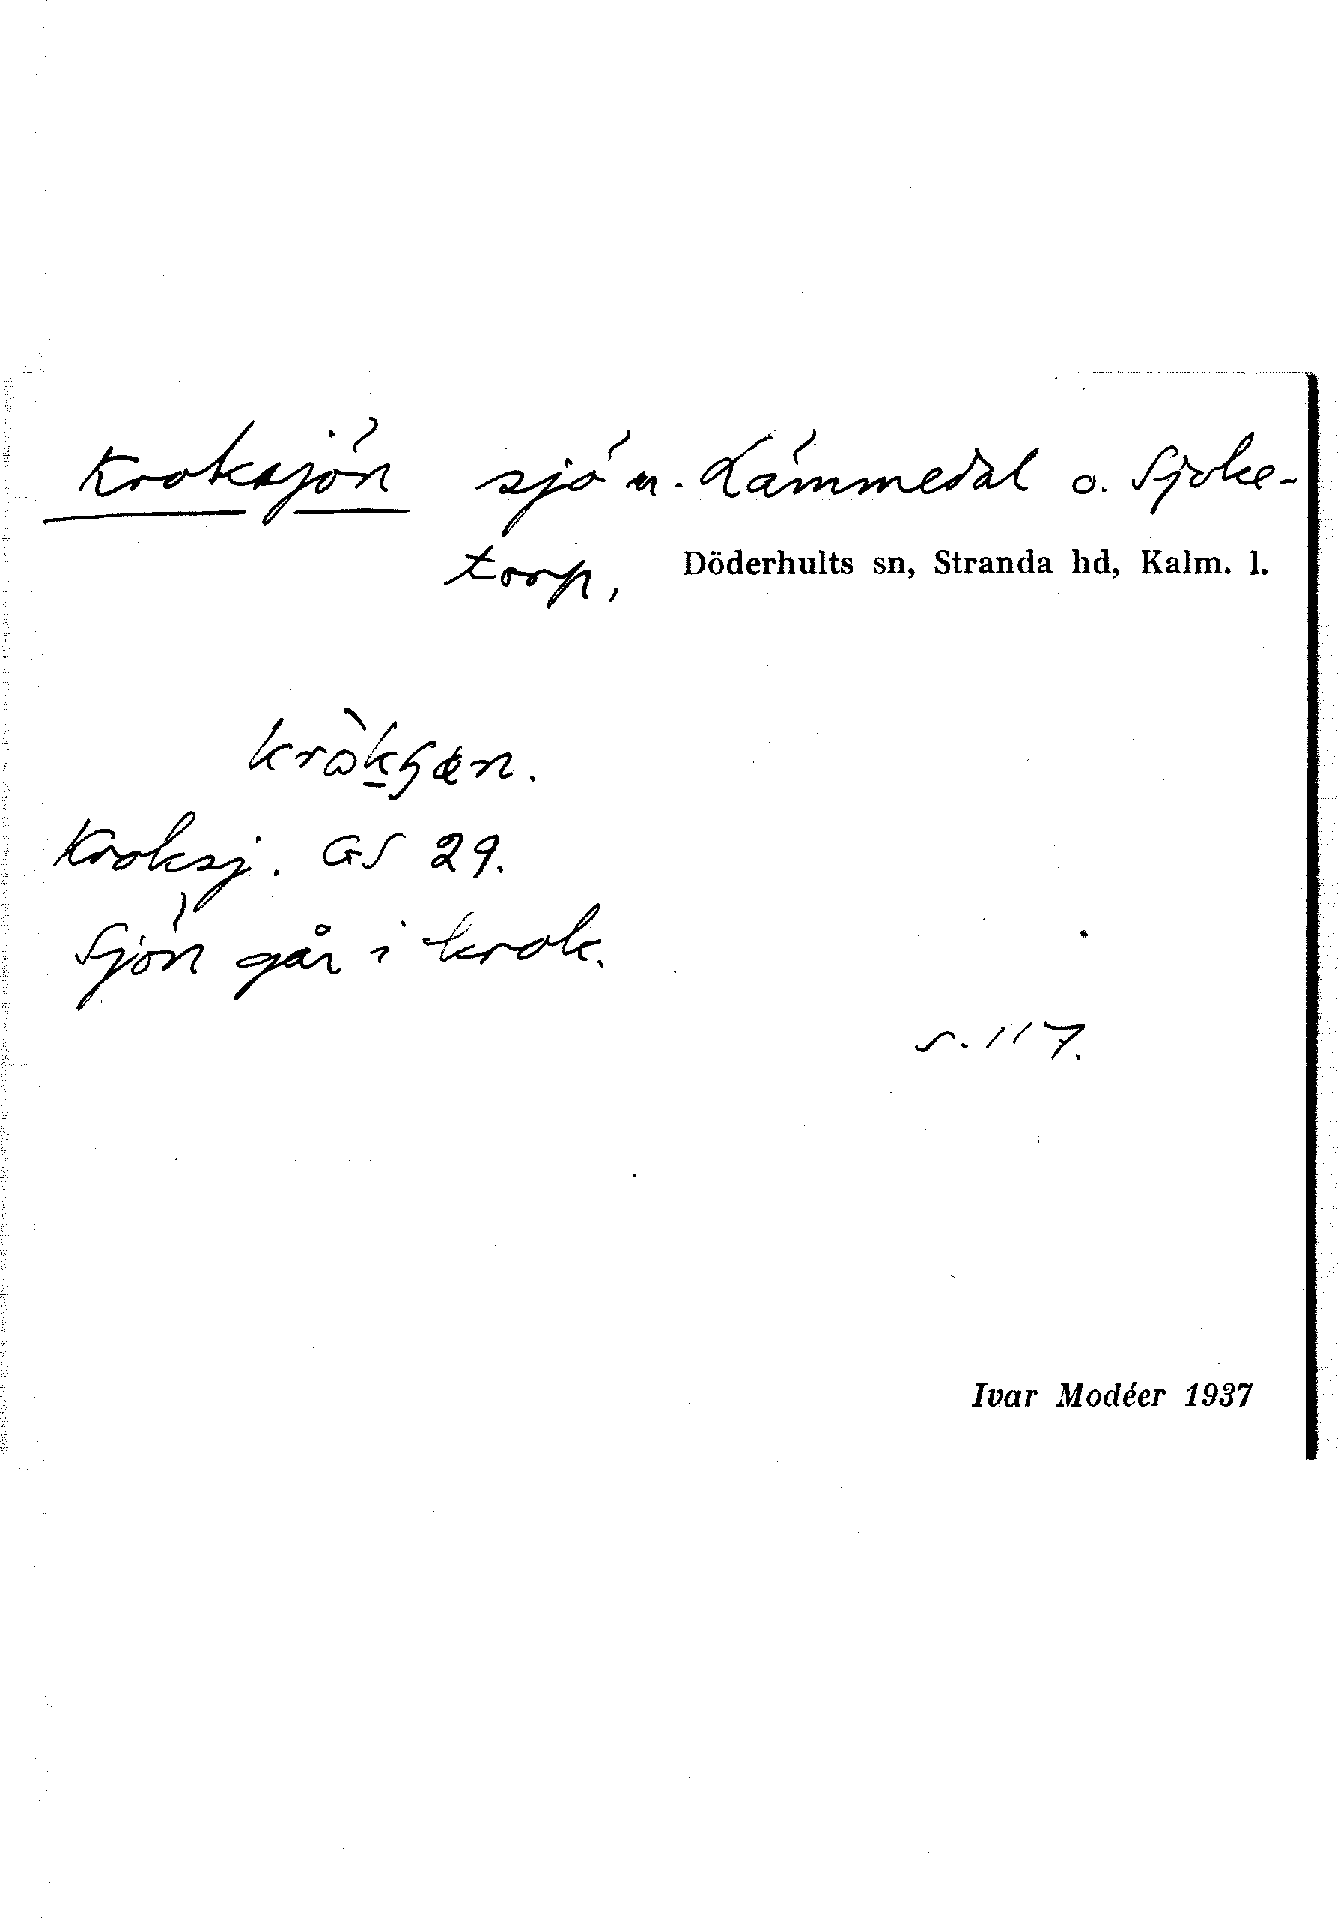 Kroksjön sjö u. Lämmedal o. Sjöke-
torp, Döderhults sn, Stranda hd, Kalm. l.
Kroksj. GS 29.
Sjön går i krok.
s. 117.
Ivar Modéer 1937